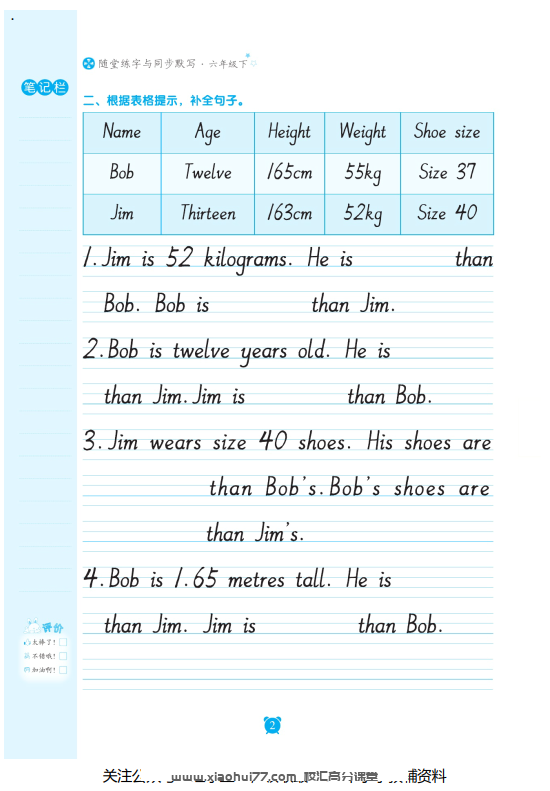 随堂练字与同步默写·六年级下
笔记栏
二、根据表格提示，补全句子。
Name Age Height Weight Shoe size
Bob Twelve 165cm 55kg Size 37
Jim Thirteen 163cm 52kg Size 40
1. Jim is 52 kilograms. He is than
Bob. Bob is than Jim.
2. Bob is twelve years old. He is
than Jim. Jim is than Bob.
3. Jim wears size 40 shoes. His shoes are
than Bob's. Bob's shoes are
than Jim's.
4. Bob is 1.65 metres tall. He is
than Jim. Jim is than Bob.
评价
太棒了!
不错哦!
加油啊!
2
关注公 www.xiaohui77.com 校汇高分课堂 辅资料